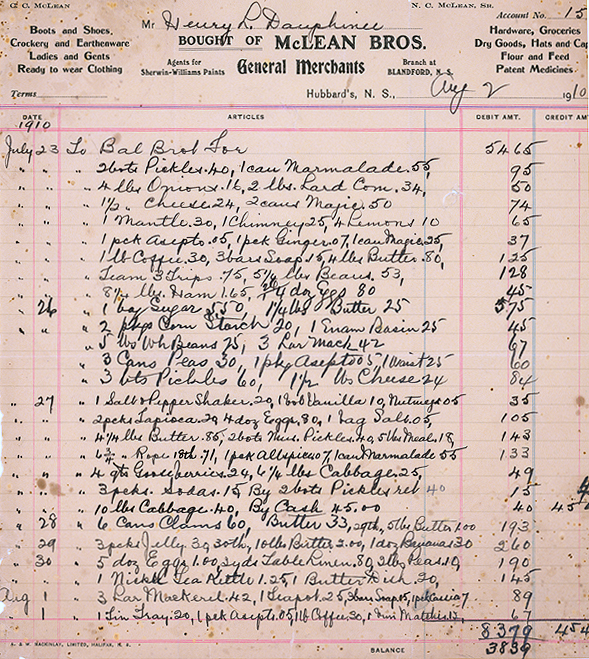 C. C. McLEAN
N. C. McLEAN, SR.
Mr. Henry L. Dauphinee
Account No. 15
Boots and Shoes,
Crockery and Earthenware
Ladies and Gents
Ready to wear Clothing
BOUGHT OF McLEAN BROS.
Hardware, Groceries
Dry Goods, Hats and Cap
Flour and Feed
Patent Medicines.
Agents for
Sherwin-Williams Paints
General Merchants
Branch at
BLANDFORD, N. S.
Terms
Hubbard's, N. S., Aug 2 1910
DATE ARTICLES DEBIT AMT. CREDIT AM
1910
July 23 To Bal Brot For 5465
" " " 2 bots Pickles .40, 1 can Marmalade .55, 95
" " " 4 lbs Onions .16, 2 lbs. Lard Com. 34, 50
" " " 1½ " Cheese .24, 2 cans Magic .50 74
" " " 1 Mantle .30, 1 Chimney 25, 4 Lemons 10 65
" " " 1 pck Asepto .05, 1 pck Ginger .07, 1 can Magic .25, 37
" " " 1 lb Coffee .30, 3 bars Soap .15, 4 lbs Butter .80, 125
" " " Team 3 Trips .75, 5¼ lbs Beans .53, 128
" " " 8¼ lbs. Ham 1.65, 4 doz Eggs 80 45
" 26 " 1 bag Sugar 5.50, 1¼ lbs Butter 25 575
" " " 2 pkgs Corn Starch 20, 1 Enam Basin 25 45
" 5 lbs Wh Beans 25, 3 Lar Mack 42 67
" 3 Cans Peas 30, 1 pkg Asepto 05, 1 25 60
" 3 bts Pickles 60, 1½ lbs Cheese 24 84
" 27 " 1 Salt & Pepper Shaker .20, 1 bot Vanilla 10, Nutmegs .05 35
" " " 2 pcks Tapioca .20, 4 doz Eggs .80, 1 bag Salt .05, 105
" " " 4¼ lbs Butter .85, 2 bots Mus. Pickles .40, 5 lbs Meal .18, 143
" " " 6¾ " Rope 18th .71, 1 pck Allspice 07, 1 can Marmalade 55 133
" " " 4 qts Gooseberries .24, 6¼ lbs Cabbage .25, 49
" " " 3 pcks. Sodas .15 By 2 bots Pickles ret 40 15
" " " 10 lbs Cabbage .40, By Cash 45.00 40
" 28 " 6 Cans Clams 60, Butter 33, 29th, 5 lbs Butter 1.00 193
" 29 " 3 pcks Jelly 30, 30th, 10 lbs Butter 2.00, 1 doz Bananas 30 260
" 30 " 5 doz Eggs 1.00, 2 yds Table Linen .80, 2 lbs Peas 10, 190
" " " 1 Nickle Tea Kettle 1.25, 1 Butter Dish .20, 145
Aug 1 " 3 Lar Mackerel .42, 1 Teapot .25, 3 bars Soap .15, 1 pck Cassia 7 89
" 1 " 1 Tin Tray .20, 1 pck Asepto .05, 1 lb Coffee 30, 1 Matches 12, 67
8379 454
A. & W. MACKINLAY, LIMITED, HALIFAX, N. S.
BALANCE 3839